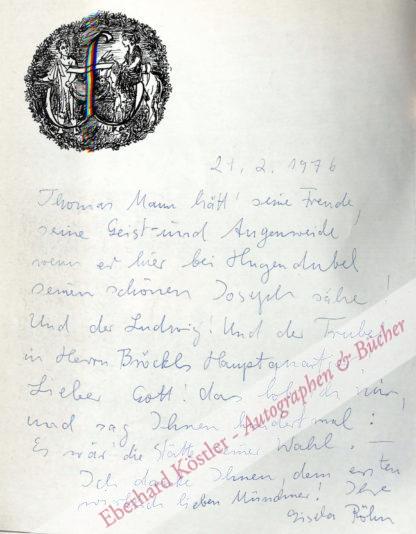 21. 2. 1976
Thomas Mann hätt' seine Freude,
seine Geist- und Augenweide
wenn er hier bei Hugendubel
seinen schönen Joseph sähe!
Und der Ludwig! Und der Trubel
in Herrn Bröckls
Lieber Gott! das lob ich mir,
und sag Ihnen hundertmal:
Es wär die Stätte meiner Wahl. —
Ich danke Ihnen, dem ersten
wirklich lieben Münchner! Ihre
Gisela Röhn
Eberhard Köstler - Autographen & Bücher